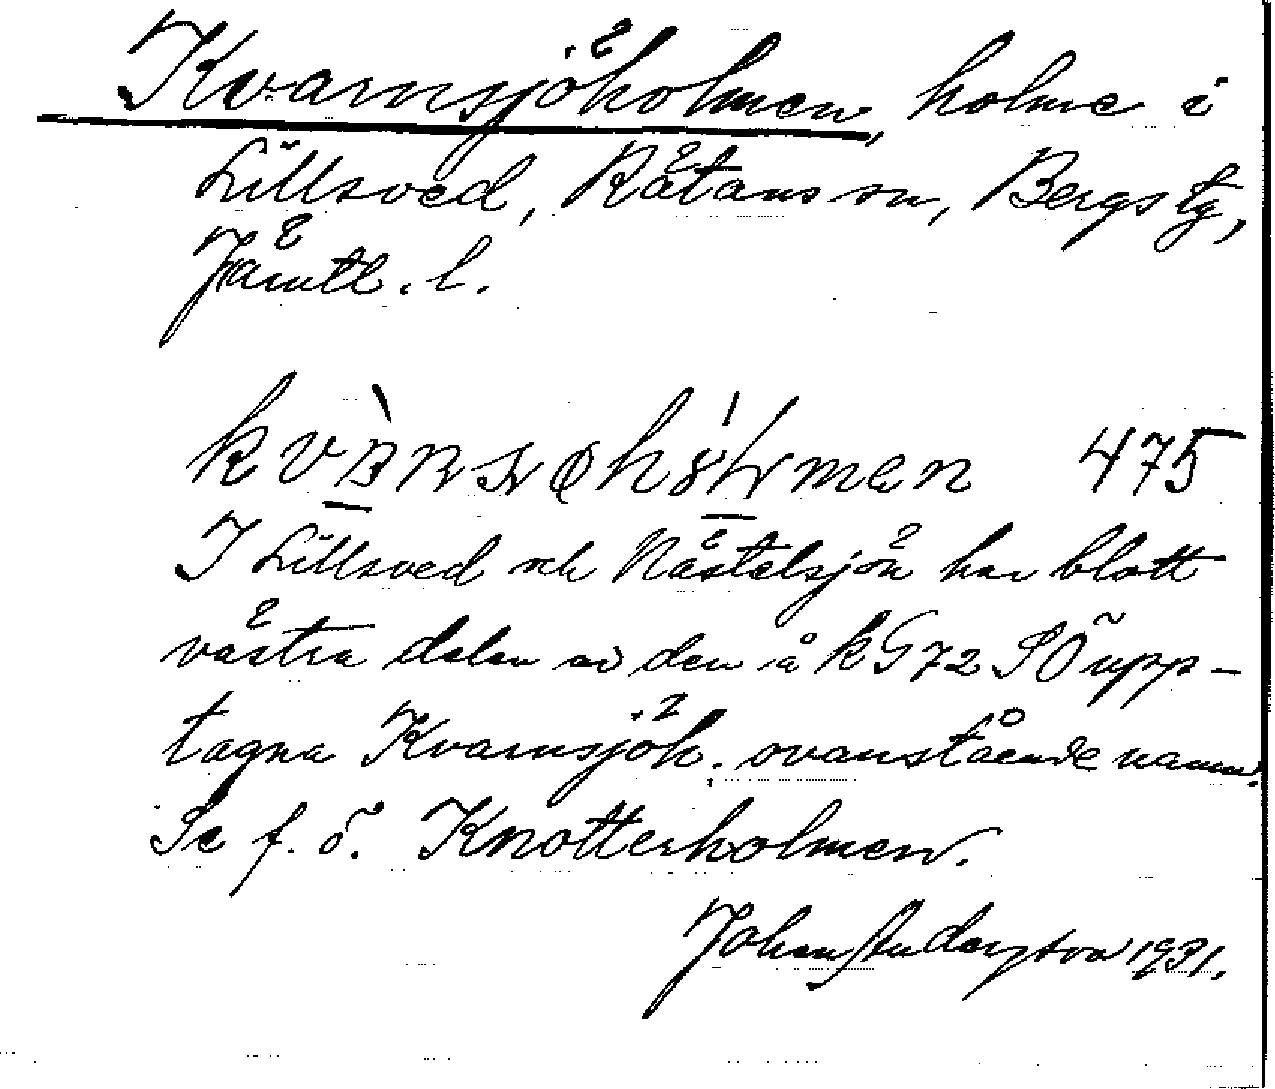 Kvarnsjöholmen, holme i
Lillsved, Rätans sn, Bergs tg,
Jämtl. l.
475
I Lillsved och Nästelsjön har blott
västra delen av den å kG72 SÖ upp-
tagna Kvarnsjöh. ovanstående namn.
Se f. ö. Knotterholmen.
Johan Anderzton 1931.